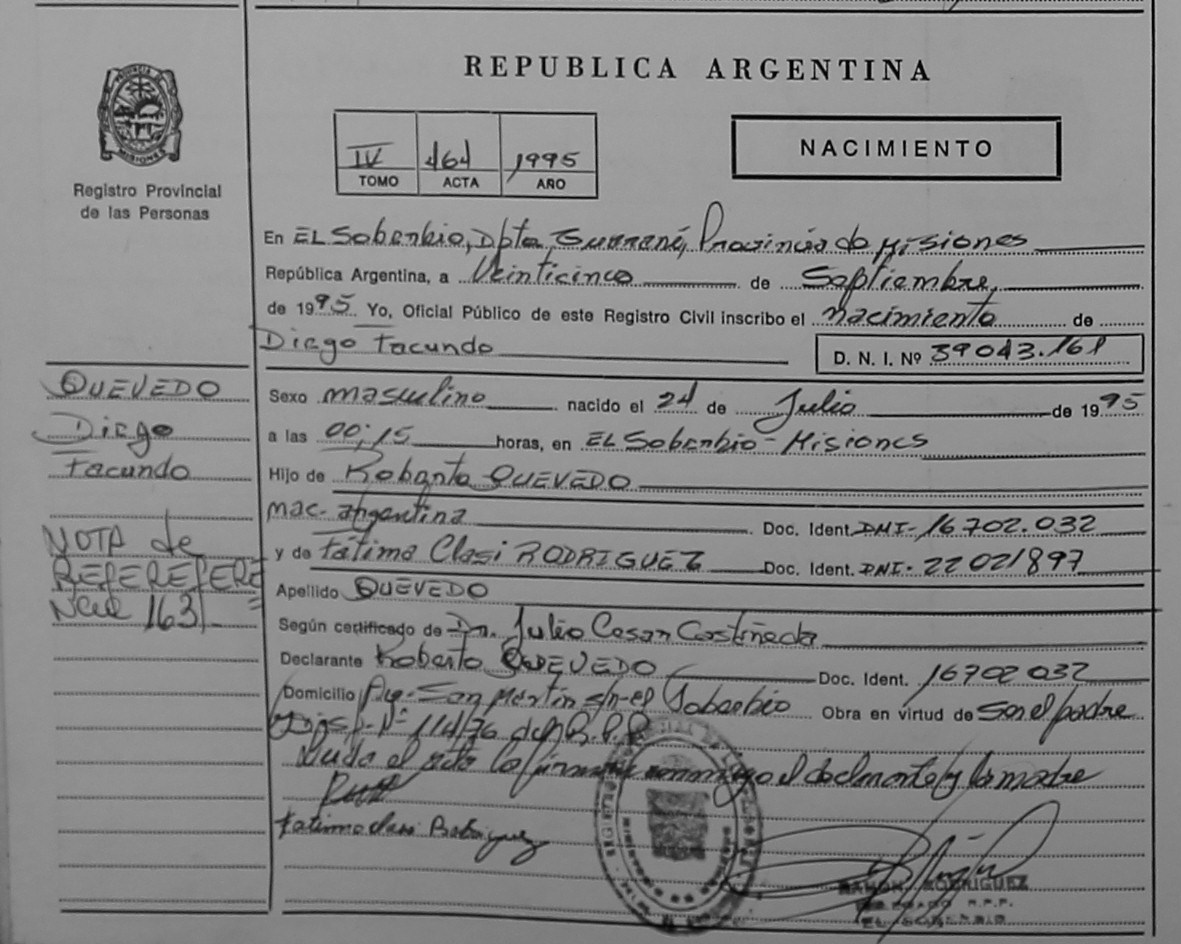 REPUBLICA ARGENTINA
PROVINCIA DE
MISIONES
Registro Provincial
de las Personas
IV 464 1995
TOMO ACTA AÑO
NACIMIENTO
En EL Soberbio, Dpto, Guaraní, Provincia de Misiones
República Argentina, a Veinticinco de Septiembre,
de 1995 Yo, Oficial Público de este Registro Civil inscribo el nacimiento de
Diego Facundo
D. N. I. Nº 39043.161
QUEVEDO
Diego
Facundo
Sexo masculino nacido el 24 de Julio de 1995
a las 00;15 horas, en EL Soberbio - Misiones
Hijo de Roberto QUEVEDO
nac. argentina Doc. Ident. DNI- 16702.032
y de Fátima Clasi RODRIGUEZ Doc. Ident. DNI- 22021897
Apellido QUEVEDO
NOTA de
REFEREFERE
Ncia 163/
Según certificado de Dr. Julio Cesar Castiñeda
Declarante Roberto QUEVEDO Doc. Ident. 16702 032
Domicilio San Martín s/n- el Soberbio Obra en virtud de Ser el padre
Disp. Nº 114/76 R.P.P.
Leída el acta la firman conmigo el declarante y la madre
Fatima Clasi Rodriguez
RAMON RODRIGUEZ
DELEGADO R.P.P.
EL SOBERBIO